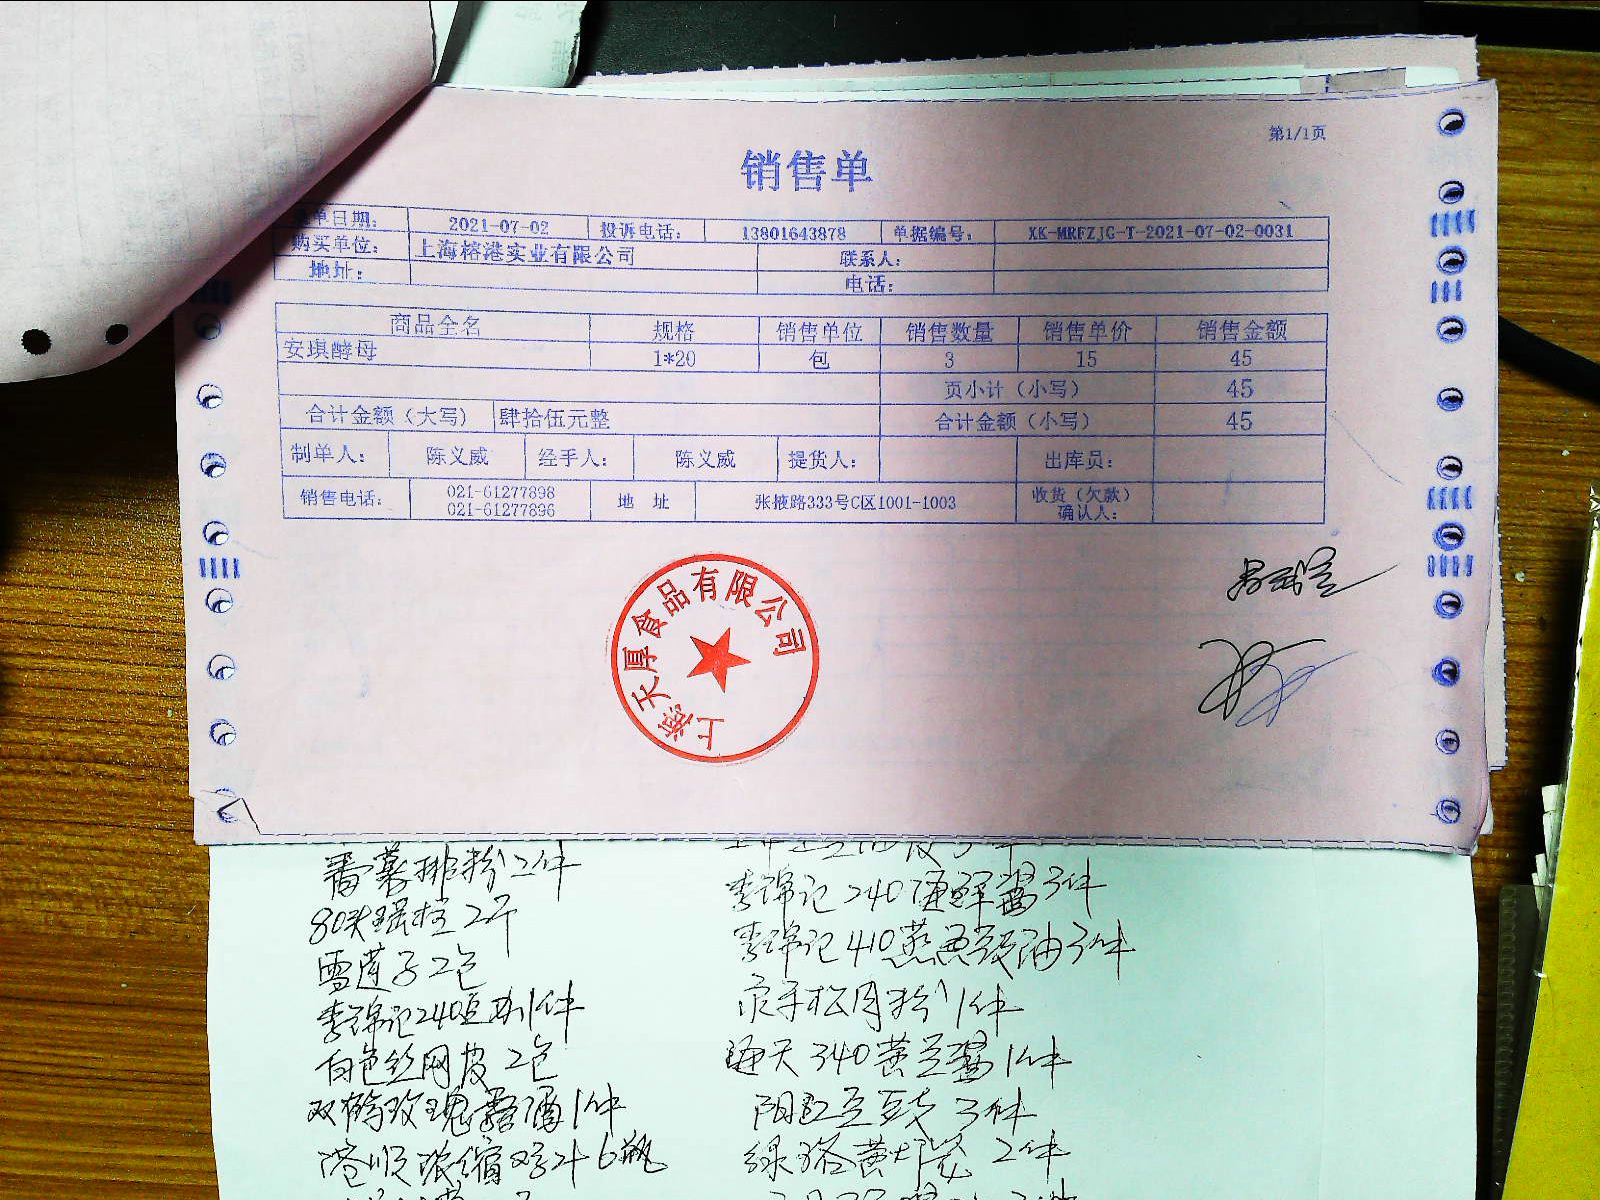 第1/1页
销售单
单日期： 2021-07-02 投诉电话： 13801643878 单据编号： XK-MRFZJC-T-2021-07-02-0031
购买单位： 上海榕港实业有限公司 联系人：
地址： 电话：
商品全名 规格 销售单位 销售数量 销售单价 销售金额
安琪酵母 1*20 包 3 15 45
页小计（小写） 45
合计金额（大写） 肆拾伍元整 合计金额（小写） 45
制单人： 陈义威 经手人： 陈义威 提货人： 出库员：
销售电话： 021-61277898 021-61277896 地 址 张掖路333号C区1001-1003 收货（欠款）确认人：
上海天厚食品有限公司
番薯排粉2件
80头瑶柱2斤
雪莲子2包
李锦记240 1件
白色丝网皮2包
双鹤玫瑰露酒1件
浓缩 6瓶
李锦记240海鲜酱3件
李锦记410蒸鱼豉油3件
粉1件
海天340黄豆酱1件
阳江豆豉3件
黄 2件